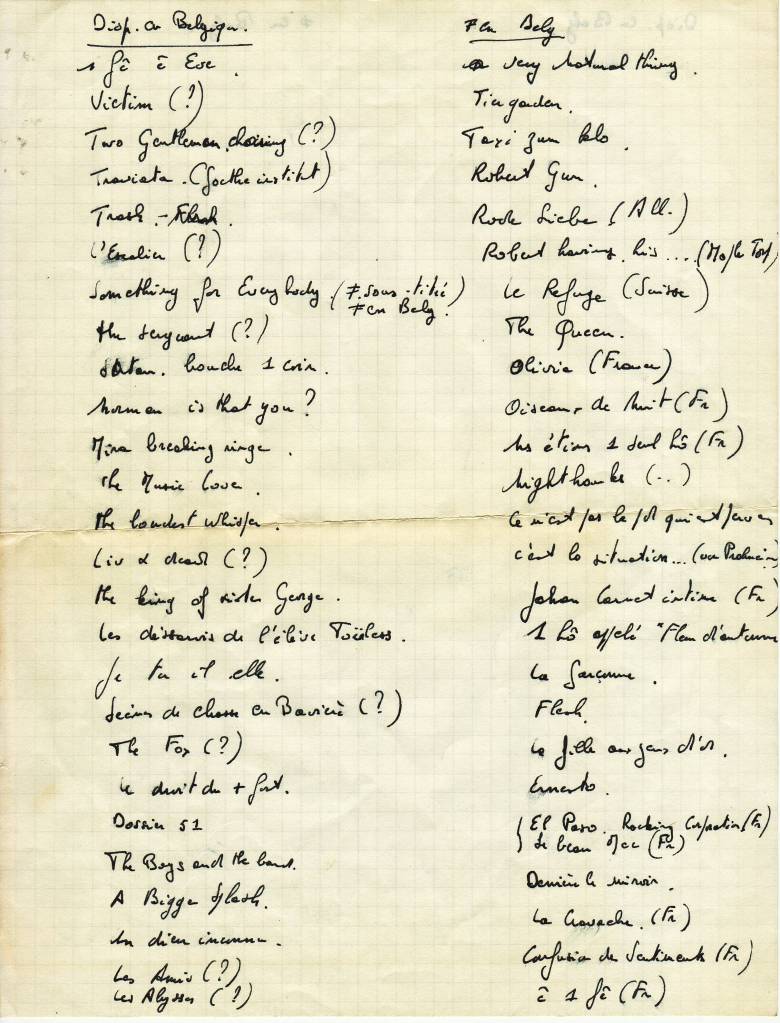 Disp. en Belgique.
1 fê ê Eve.
Victim (?)
Two Gentlemen sharing (?)
Traviata. (Goethe institut)
Trash. -
L'Escalier (?)
Something for Everybody. (F. sous-titré)
F en Belg.
the sergeant (?)
Satan. bouche 1 coin.
Norman is that you?
The Music Lover.
the loudest whisper.
the king of sister George.
Les désarrois de l'élève Toërless.
Je tu il elle.
Scènes de chasse en Bavière (?)
The Fox (?)
Le droit du + fort.
Dossier 51
The Boys and the band.
A Bigger Splash.
Un dieu inconnu.
Les Amis (?)
Les Abysses (?)
F en Belg
a very natural thing.
Tiergarden.
Taxi zum klo.
Robert
Liebe (All.)
Robert having his .... (
Le Refuge (Suisse)
The Queen.
Olivia (France)
Oiseaux de Nuit (Fr)
1 seul hô (Fr)
Nighthawks (..)
Ce n'est pas le qui est pervers
c'est la situation... (von
Johan Carnet intime (Fr)
1 hô appelé "Fleur d'automne
La Garçonne.
Flesh.
La fille aux yeux d'or.
Ernesto.
El Paso. (Fr)
Le beau Mec (Fr)
Derrière le miroir.
La Cravache. (Fr)
Confusion des Sentiments (Fr)
ê 1 fê (Fr)